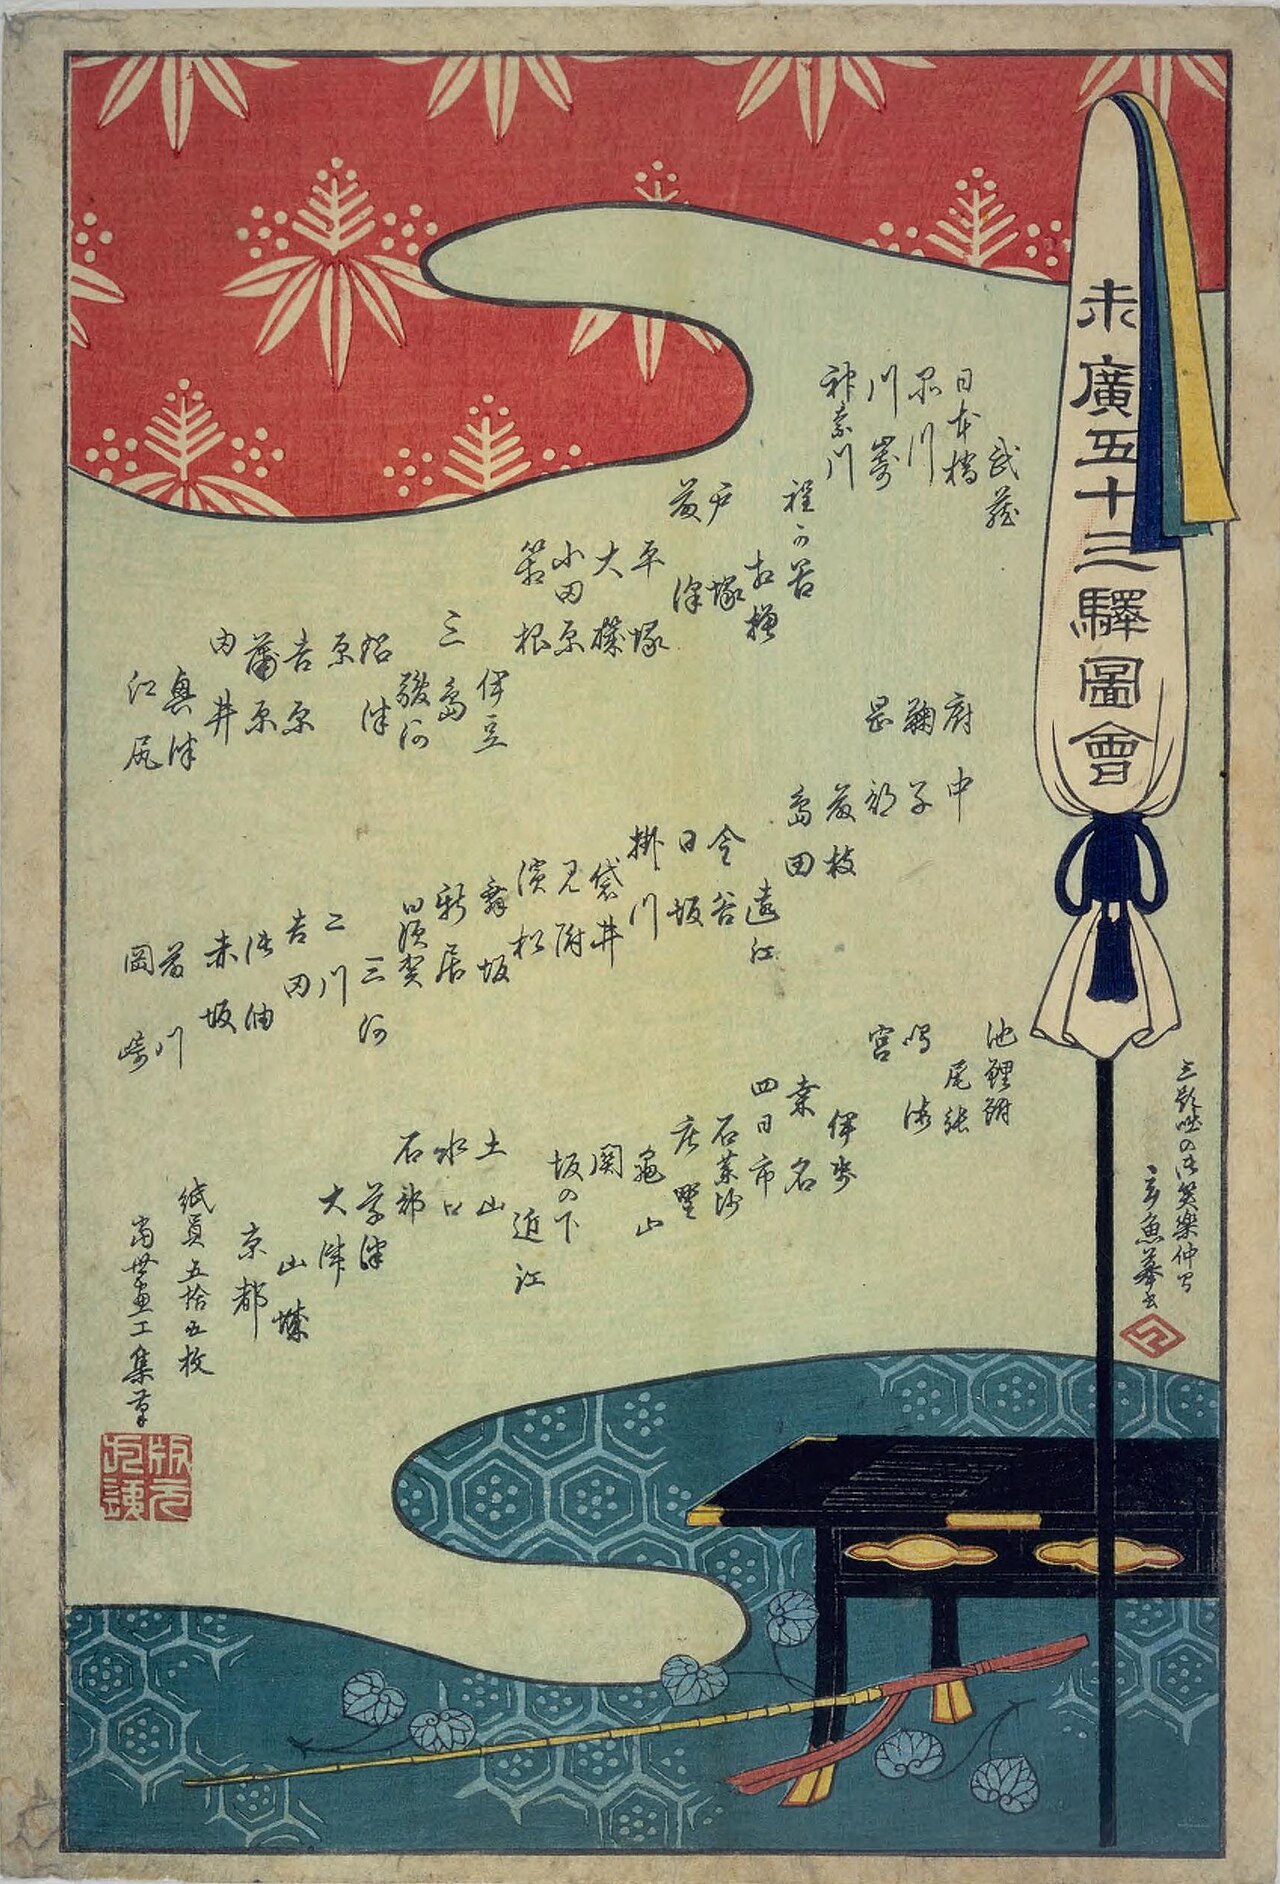 末廣五十三驛圖會
武蔵
日本橋
品川
川嵜
神奈川
程か谷
相模
戸塚
藤澤
平塚
大磯
小田原
箱根
伊豆
三島
駿河
沼津
原
吉原
蒲原
由井
奥津
江尻
府中
鞠子
岡部
藤枝
島田
遠江
金谷
日坂
掛川
袋井
見附
濱松
舞坂
新居
白須賀
三河
二川
吉田
御油
赤坂
藤川
岡崎
池鯉鮒
尾張
鳴海
宮
伊勢
桑名
四日市
石薬師
庄野
亀山
関
坂の下
近江
土山
水口
石部
草津
大津
山城
京都
紙員五拾五枚
當世画工集筆
玄魚
版元